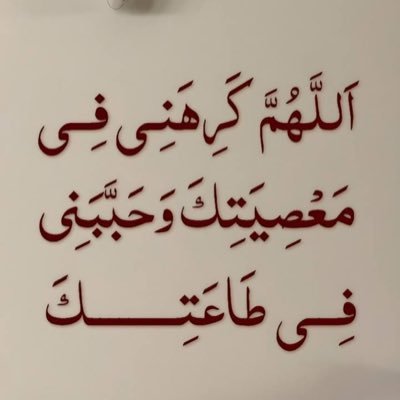 اَللَّهُمَّ كَرِهَنِى فِى
مَعْصِيَتِكَ وَحَبَّبَنِى
فِى طَاعَتِكَ